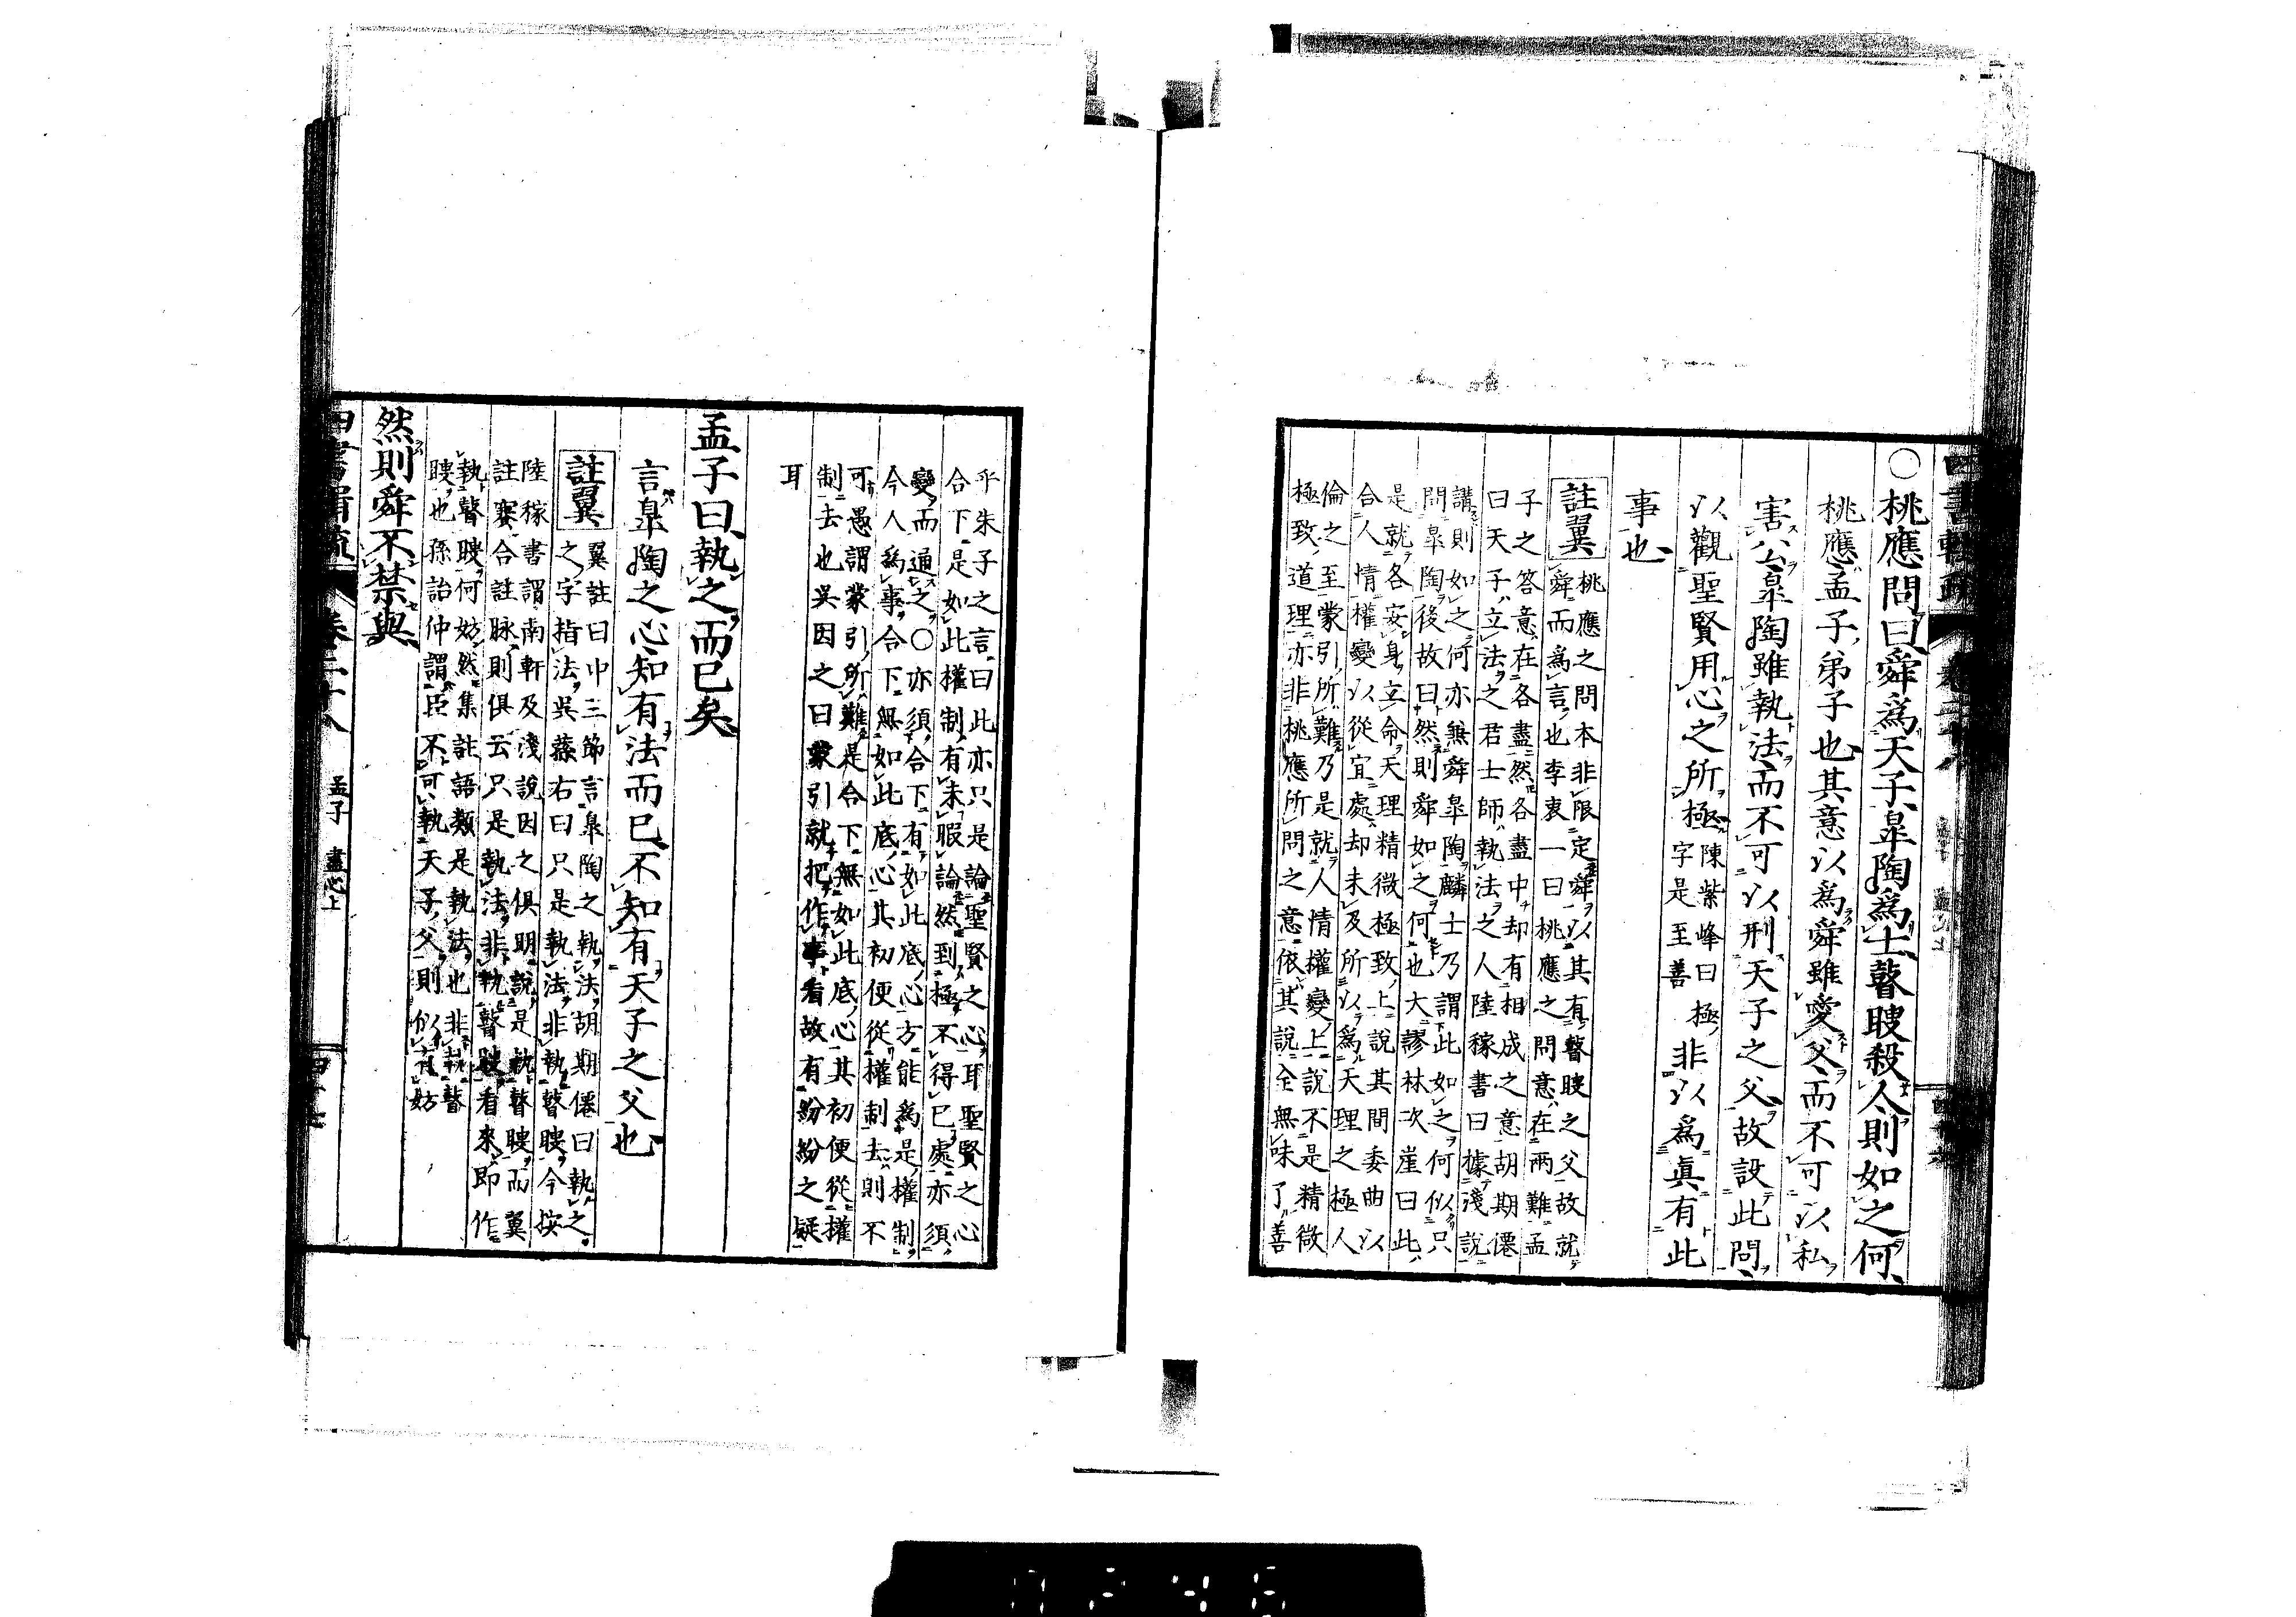 ○桃應問曰舜爲天子皐陶爲士瞽瞍殺人則如之何
桃應孟子弟子也其意以爲舜雖愛父而不可以私
害公皐陶雖執法而不可以刑天子之父故設此問
以觀聖賢用心之所極陳紫峰曰極
字是至善非以爲眞有此
事也
註翼
桃應之問本非限定舜以其有瞽瞍之父故就
舜而爲言也李衷一曰桃應之問意在兩難孟
子之答意在各盡然各盡中却有相成之意胡期僊
曰天子立法之君士師執法之人陸稼書曰據淺説
講則如之何亦無舜皐陶麟士乃謂此如之何似只
問皐陶後故曰然則舜如之何也大謬林次崖曰此
是就各安身立命天理精微極致上説其間委曲以
合人情權變以從宜處却未及所以爲天理之極人
倫之至蒙引所難乃是就人情權變上説不是精微
極致道理亦非桃應所問之意依其説全無味了善
乎朱子之言曰此亦只是論聖賢之心耳聖賢之心
合下是如此權制有未暇論然到極不得已處亦須
變而通之○亦須合下有如此底心方能爲是權制
今人爲事合下無如此底心其初便從權制去則不
可愚謂蒙引所難是合下無如此底心其初便從權
制去也吳因之曰蒙引就把作事看故有紛紛之疑
耳
孟子曰執之而已矣
言皐陶之心知有法而已不知有天子之父也
註翼
翼註曰中三節言皐陶之執法胡期僊曰執之
之字指法吳蓀右曰只是執法非執瞽瞍今按
陸稼書謂南軒及淺説因之俱明説是執瞽瞍而翼
註賽合註脉則俱云只是執法非執瞽瞍看來即作
執瞽瞍何妨然集註語類是執法也非執瞽
瞍也孫詒仲謂臣不可執天子父則似有妨
然則舜不禁與
孟子 盡心上